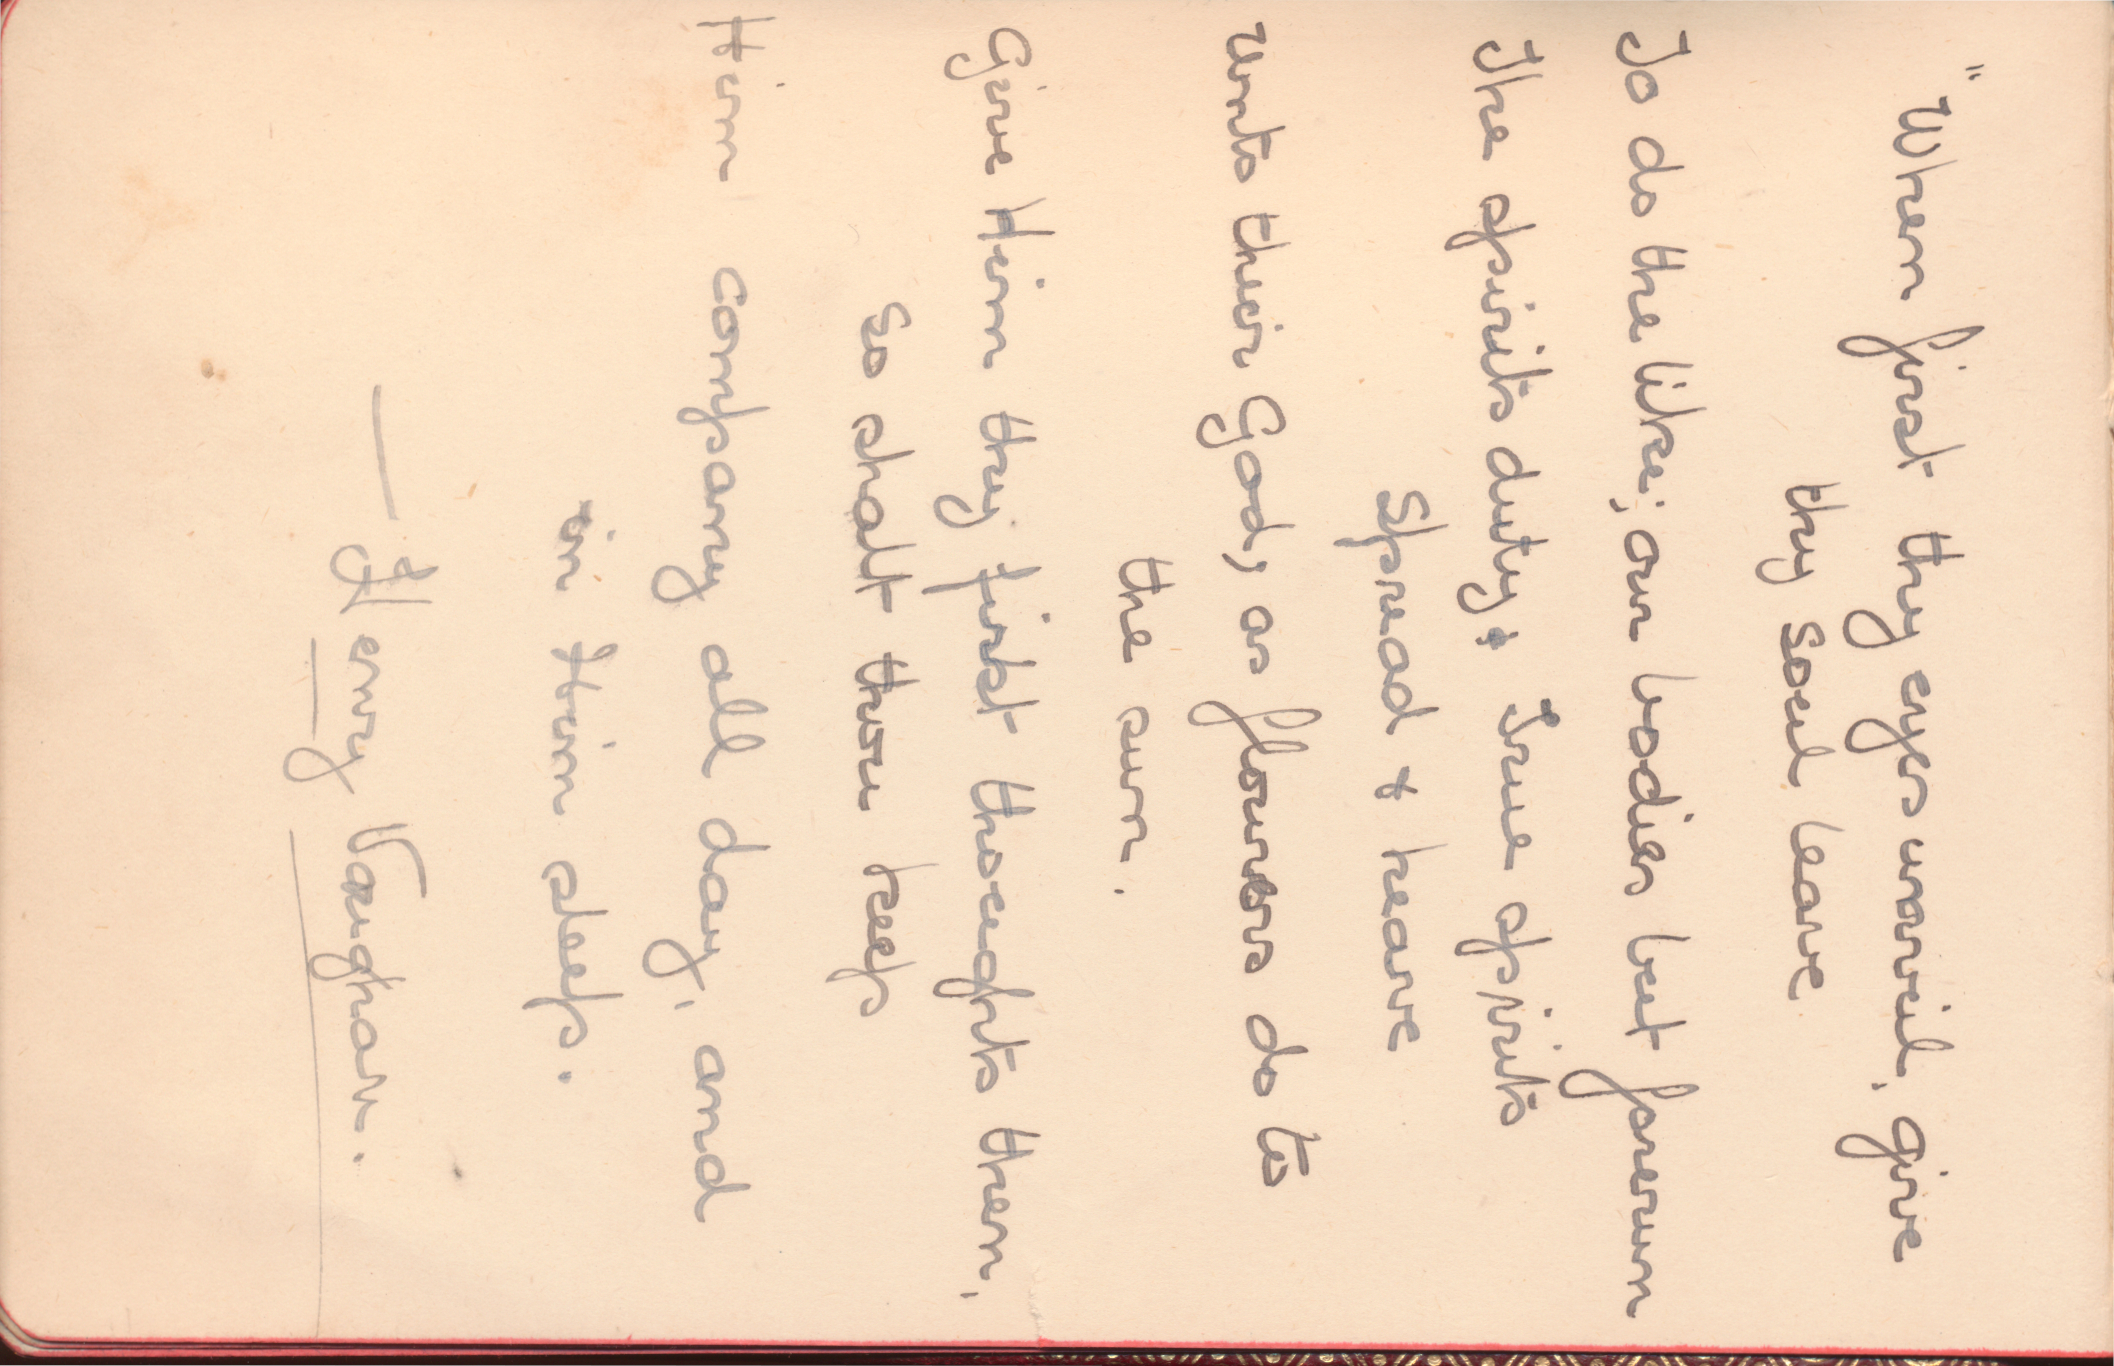 "When first thy eyes unveil, give
thy soul leave
To do the like; our bodies but forerun
The spirits duty; True spirits
Spread & heave
Unto their God, as flowers do to
the sun.
Give Him thy first thoughts then,
so shalt thou keep
Him company all day, and
in Him sleep.
— Henry Vaughan.